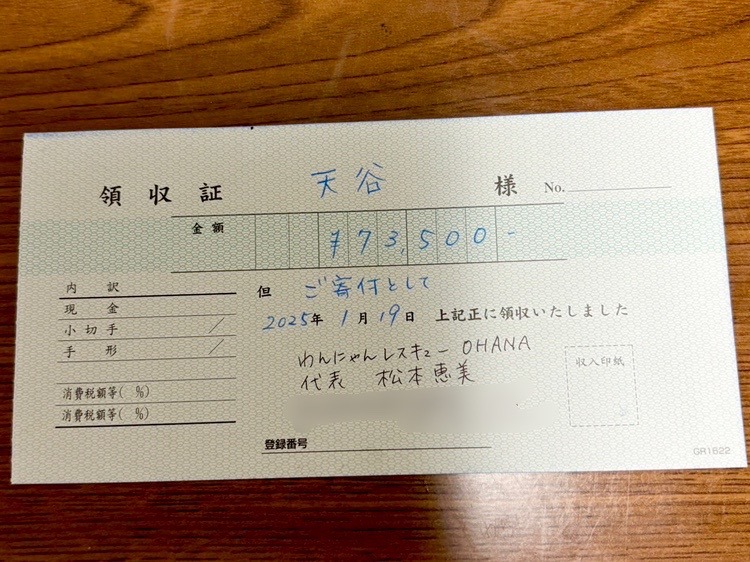 領収証 天谷 様 No.
金額 ¥73,500-
但 ご寄付として
2025年1月19日 上記正に領収いたしました
わんにゃんレスキュー OHANA
代表 松本恵美
内訳
現金
小切手 /
手形 /
消費税額等( %)
消費税額等( %)
収入印紙
登録番号
GR1622